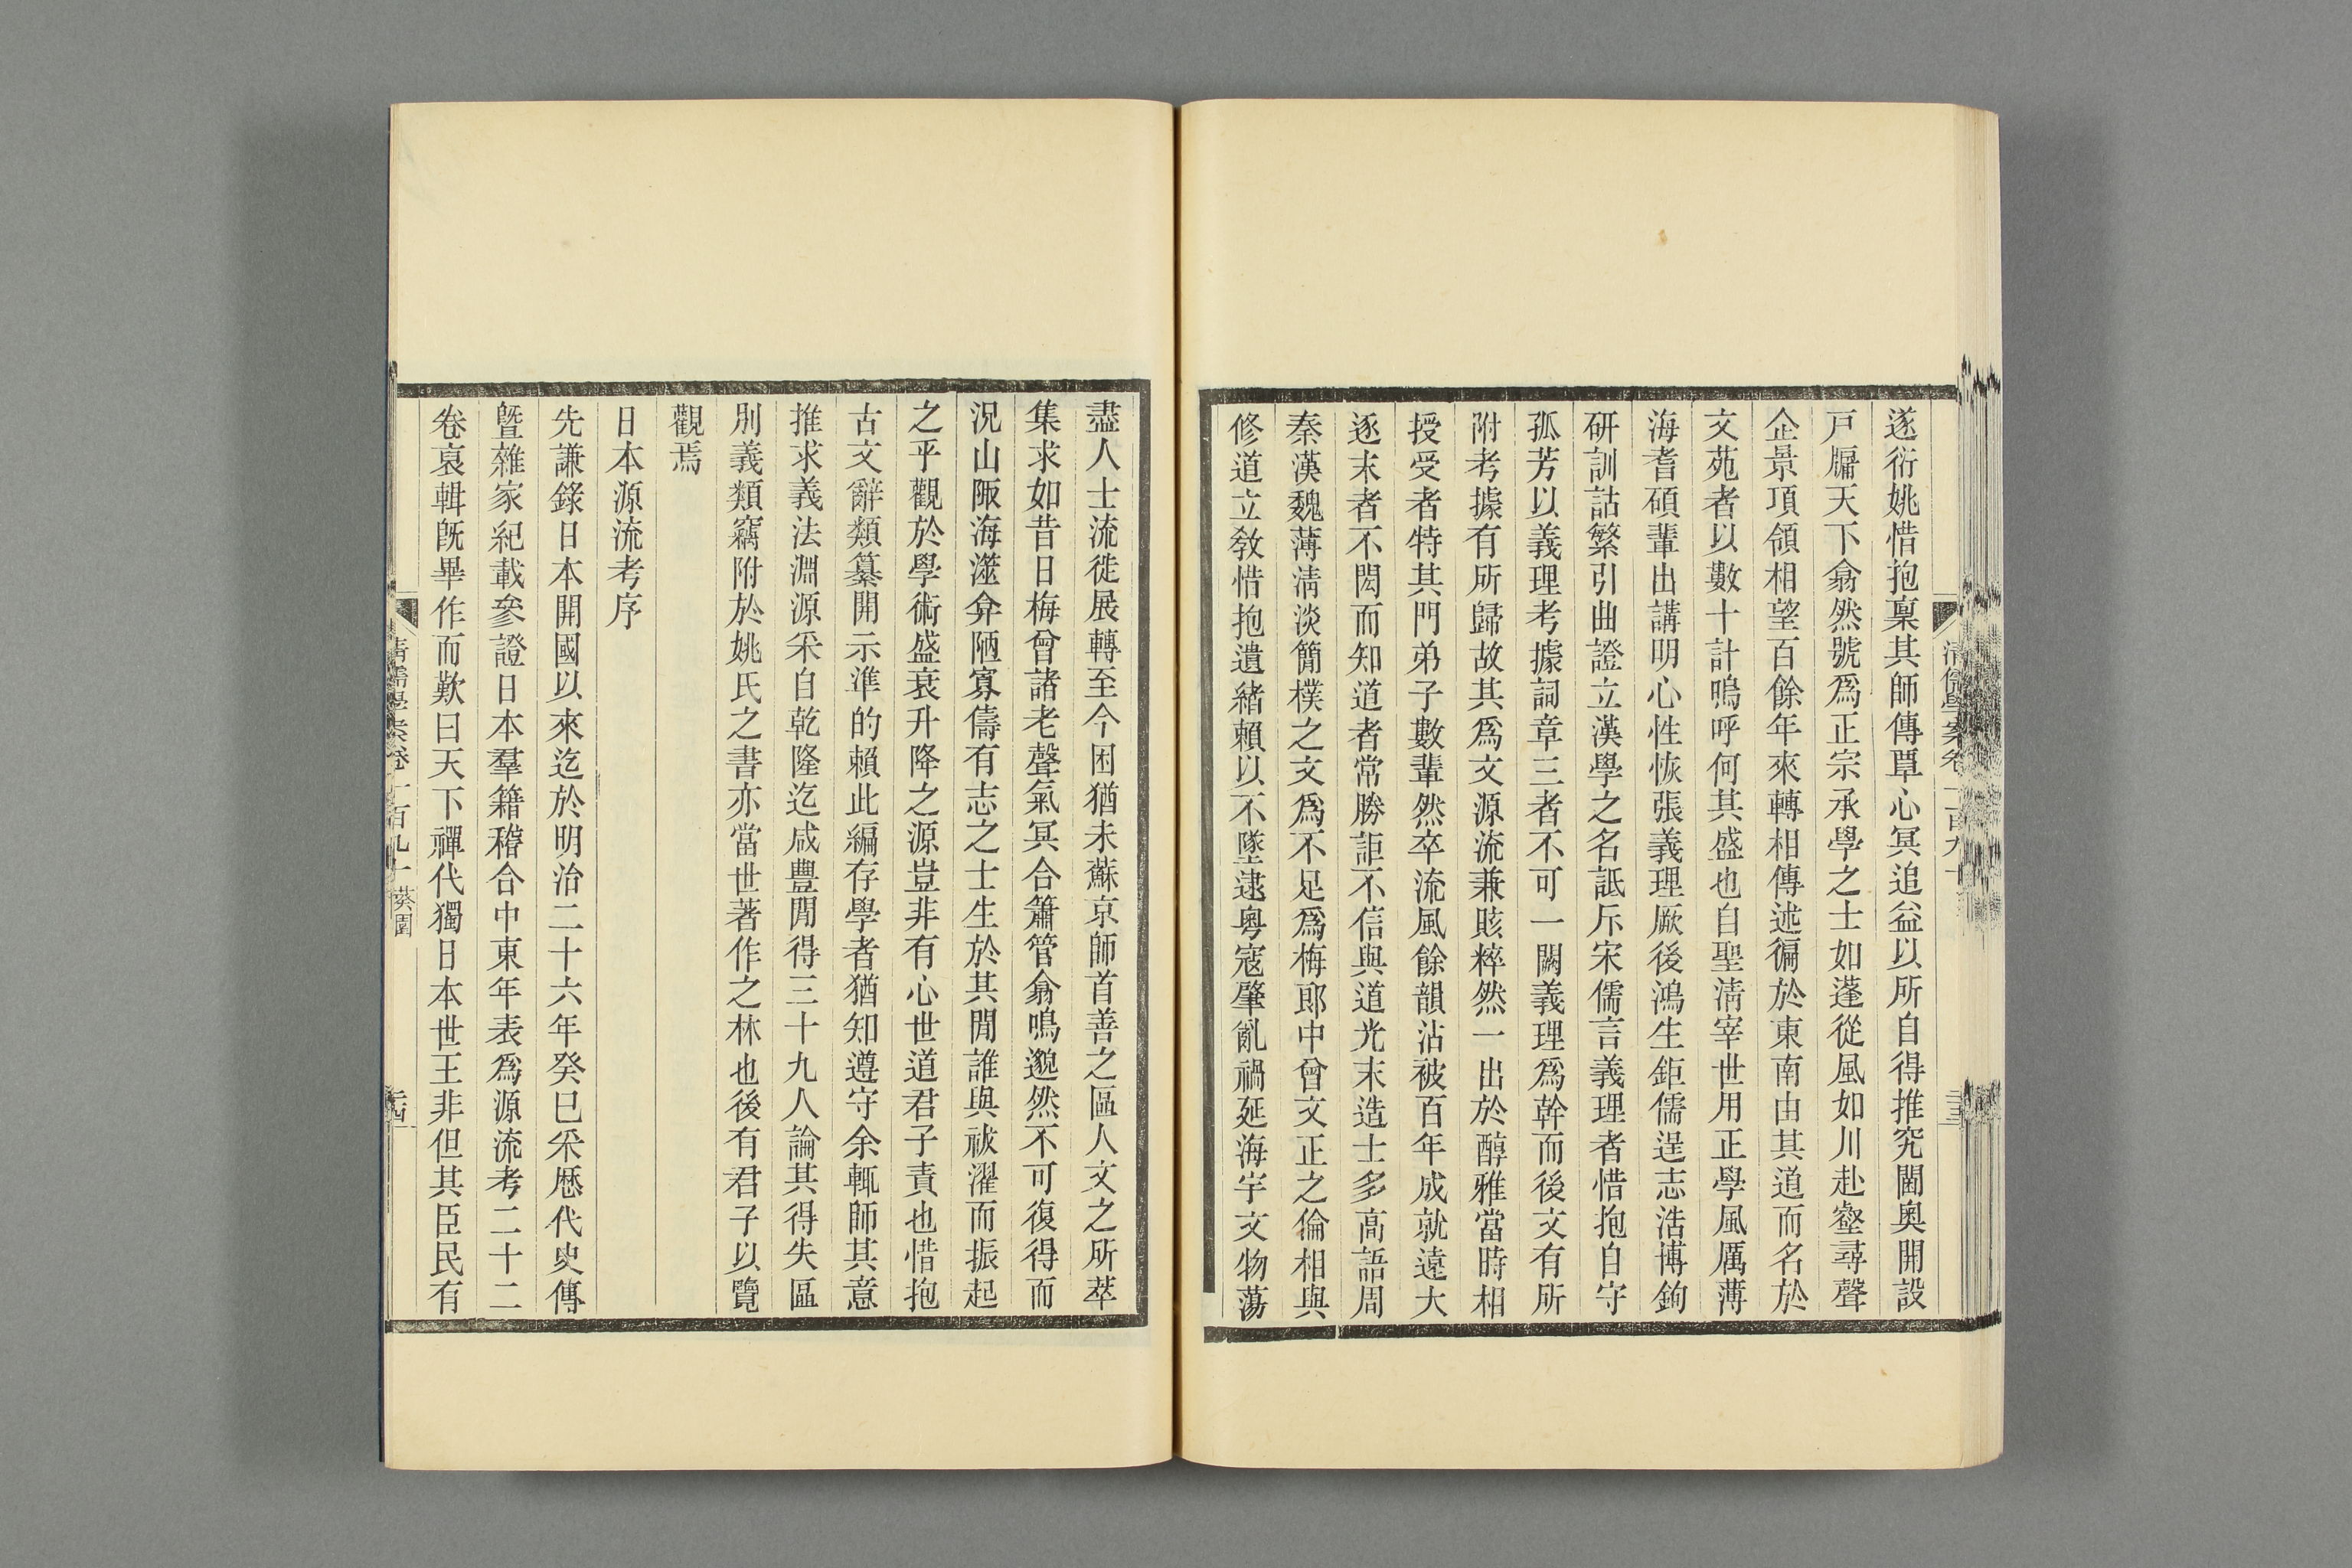 遂衍姚惜抱稟其師傳覃心冥追益以所自得推究閫奧開設
戸牖天下翕然號爲正宗承學之士如蓬從風如川赴壑尋聲
企景項領相望百餘年來轉相傳述徧於東南由其道而名於
文苑者以數十計嗚呼何其盛也自聖清宰世用正學風厲薄
海耆碩輩出講明心性恢張義理厥後鴻生鉅儒逞志浩博鉤
研訓詁繁引曲證立漢學之名詆斥宋儒言義理者惜抱自守
孤芳以義理考據詞章三者不可一闕義理爲幹而後文有所
附考據有所歸故其爲文源流兼賅粹然一出於醇雅當時相
授受者特其門弟子數輩然卒流風餘韻沾被百年成就遠大
逐末者不閎而知道者常勝詎不信與道光末造士多高語周
秦漢魏薄清淡簡樸之文爲不足爲梅郎中曾文正之倫相與
修道立敎惜抱遺緒賴以不墜逮粵寇肇亂禍延海宇文物蕩
清儒學案卷一百九十
盡人士流徙展轉至今困猶未蘇京師首善之區人文之所萃
集求如昔日梅曾諸老聲氣冥合簫管翕鳴邈然不可復得而
況山陬海澨弇陋寡儔有志之士生於其閒誰與祓濯而振起
之乎觀於學術盛衰升降之源豈非有心世道君子責也惜抱
古文辭類纂開示準的賴此編存學者猶知遵守余輒師其意
推求義法淵源采自乾隆迄咸豐閒得三十九人論其得失區
別義類竊附於姚氏之書亦當世著作之林也後有君子以覽
觀焉
日本源流考序
先謙錄日本開國以來迄於明治二十六年癸巳采厯代史傳
曁雜家紀載參證日本羣籍稽合中東年表爲源流考二十二
卷裒輯旣畢作而歎曰天下禪代獨日本世王非但其臣民有
清儒學案卷一百九十 葵園